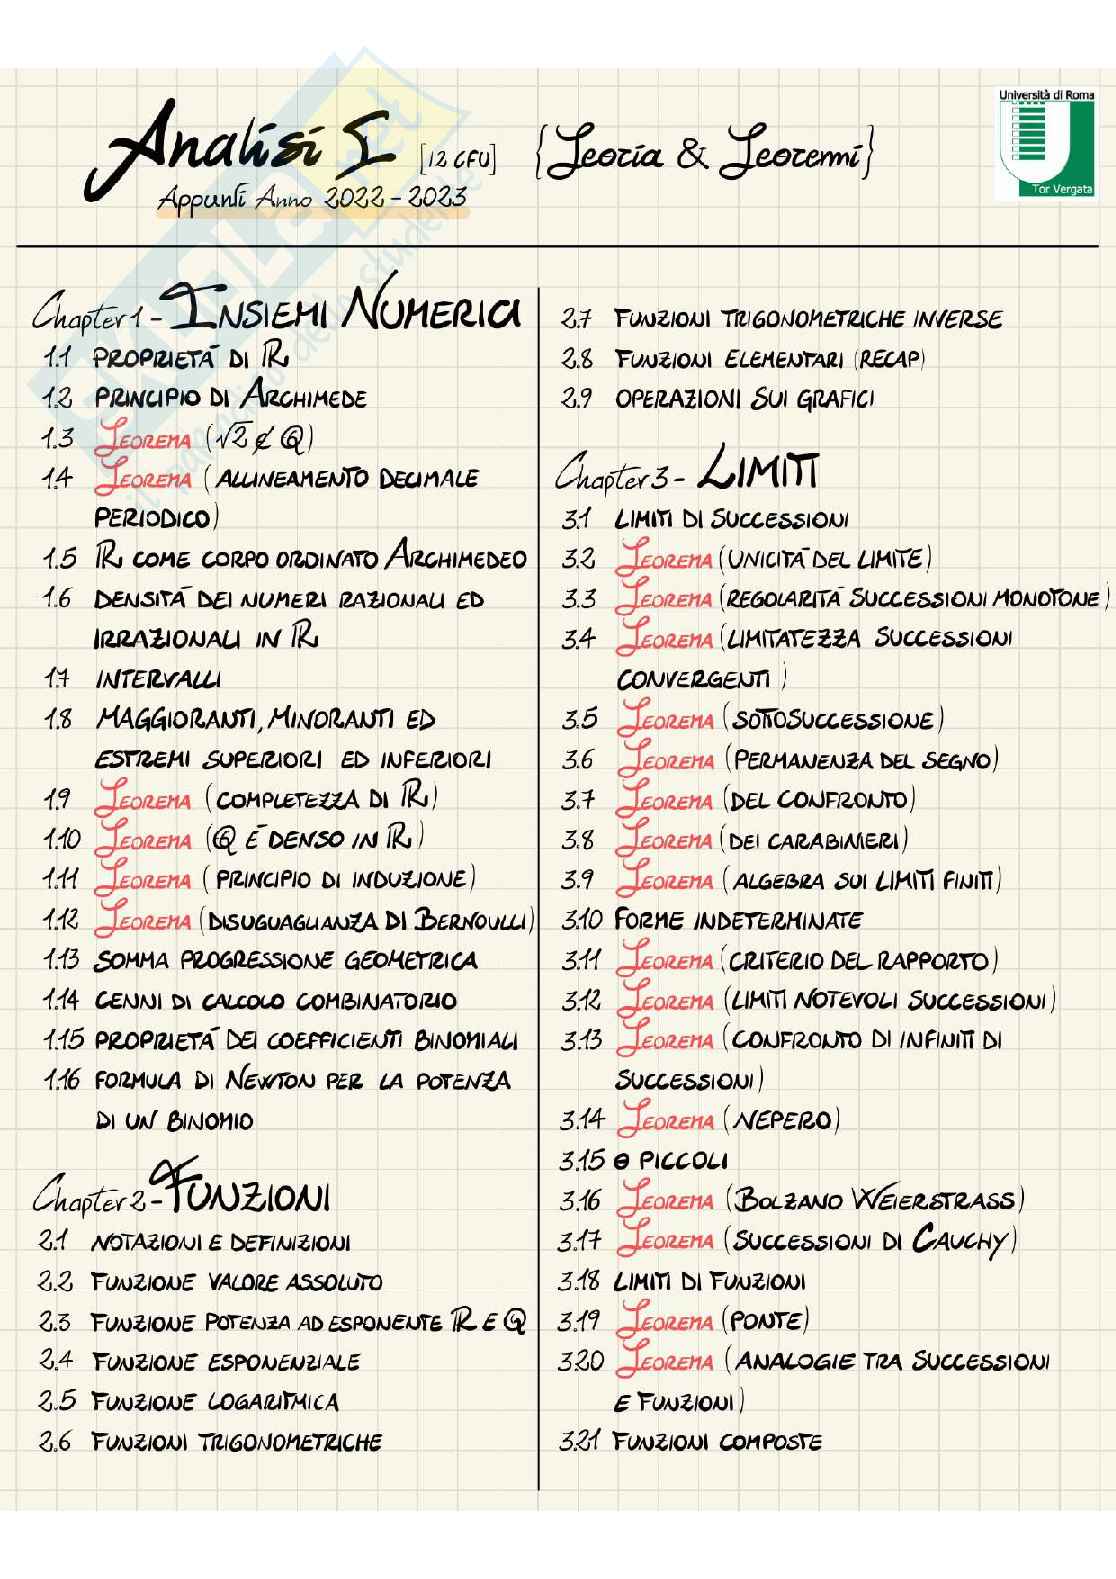 Analisi I [12 CFU] {Teoria & Teoremi}
Appunti Anno 2022-2023
Università di Roma
Tor Vergata
Chapter 1 - INSIEMI NUMERICI
1.1 PROPRIETÀ DI ℝ
1.2 PRINCIPIO DI ARCHIMEDE
1.3 TEOREMA (√2 ∉ ℚ)
1.4 TEOREMA (ALLINEAMENTO DECIMALE
PERIODICO)
1.5 ℝ COME CORPO ORDINATO ARCHIMEDEO
1.6 DENSITÀ DEI NUMERI RAZIONALI ED
IRRAZIONALI IN ℝ
1.7 INTERVALLI
1.8 MAGGIORANTI, MINORANTI ED
ESTREMI SUPERIORI ED INFERIORI
1.9 TEOREMA (COMPLETEZZA DI ℝ)
1.10 TEOREMA (ℚ È DENSO IN ℝ)
1.11 TEOREMA (PRINCIPIO DI INDUZIONE)
1.12 TEOREMA (DISUGUAGLIANZA DI BERNOULLI)
1.13 SOMMA PROGRESSIONE GEOMETRICA
1.14 CENNI DI CALCOLO COMBINATORIO
1.15 PROPRIETÀ DEI COEFFICIENTI BINOMIALI
1.16 FORMULA DI NEWTON PER LA POTENZA
DI UN BINOMIO
Chapter 2 - FUNZIONI
2.1 NOTAZIONI E DEFINIZIONI
2.2 FUNZIONE VALORE ASSOLUTO
2.3 FUNZIONE POTENZA AD ESPONENTE ℝ E ℚ
2.4 FUNZIONE ESPONENZIALE
2.5 FUNZIONE LOGARITMICA
2.6 FUNZIONI TRIGONOMETRICHE
2.7 FUNZIONI TRIGONOMETRICHE INVERSE
2.8 FUNZIONI ELEMENTARI (RECAP)
2.9 OPERAZIONI SUI GRAFICI
Chapter 3 - LIMITI
3.1 LIMITI DI SUCCESSIONI
3.2 TEOREMA (UNICITÀ DEL LIMITE)
3.3 TEOREMA (REGOLARITÀ SUCCESSIONI MONOTONE)
3.4 TEOREMA (LIMITATEZZA SUCCESSIONI
CONVERGENTI)
3.5 TEOREMA (SOTTOSUCCESSIONE)
3.6 TEOREMA (PERMANENZA DEL SEGNO)
3.7 TEOREMA (DEL CONFRONTO)
3.8 TEOREMA (DEI CARABINIERI)
3.9 TEOREMA (ALGEBRA SUI LIMITI FINITI)
3.10 FORME INDETERMINATE
3.11 TEOREMA (CRITERIO DEL RAPPORTO)
3.12 TEOREMA (LIMITI NOTEVOLI SUCCESSIONI)
3.13 TEOREMA (CONFRONTO DI INFINITI DI
SUCCESSIONI)
3.14 TEOREMA (NEPERO)
3.15 O PICCOLI
3.16 TEOREMA (BOLZANO WEIERSTRASS)
3.17 TEOREMA (SUCCESSIONI DI CAUCHY)
3.18 LIMITI DI FUNZIONI
3.19 TEOREMA (PONTE)
3.20 TEOREMA (ANALOGIE TRA SUCCESSIONI
E FUNZIONI)
3.21 FUNZIONI COMPOSTE